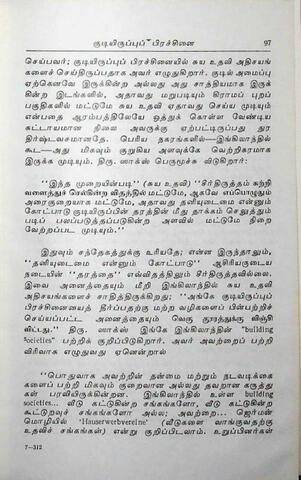 குடியிருப்புப் பிரச்சினை 97
செய்பவர்; குடியிருப்புப் பிரச்சினையில் சுய உதவி அதிசயங்
களைச் செய்திருப்பதாக அவர் எழுதுகிறார். குடில் அமைப்பு
ஏற்கெனவே இருக்கின்ற அல்லது அது சாத்தியமாக இருக்
கின்ற இடங்களில், அதாவது மறுபடியும் கிராமப் புறப்
பகுதிகளில் மட்டுமே சுய உதவி ஏதாவது செய்ய முடியும்
என்பதை ஆரம்பத்திலேயே ஒத்துக் கொள்ள வேண்டிய
கட்டாயமான நிலை அவருக்கு ஏற்பட்டிருப்பது துர
திர்ஷ்டவசமானதே. பெரிய நகரங்களில்—இங்கிலாந்தில்
கூட—அது மிகவும் குறுகிய அளவுக்கே வெற்றிகரமாக
இருக்க முடியும். திரு. ஸாக்ஸ் பெருமூச்சு விடுகிறார்:
“இந்த முறையின்படி” (சுய உதவி) “சீர்திருத்தம் சுற்றி
வளைத்துச் செல்கின்ற விதத்தில் மட்டுமே, ஆகவே எப்பொழுதும்
அரைகுறையாக மட்டுமே, அதாவது தனியுடைமை என்னும்
கோட்பாடு குடியிருப்பின் தரத்தின் மீது தாக்கம் செலுத்தும்
படிப் பலப்படுத்தப்படுகின்ற அளவில் மட்டுமே நிறை
வேற்றப்பட முடியும்.”
இதுவும் சந்தேகத்துக்கு உரியதே; என்ன இருந்தாலும்,
“தனியுடைமை என்னும் கோட்பாடு” ஆசிரியருடைய
நடையின் “தரத்தை” எவ்விதத்திலும் சீர்திருத்தவில்லை.
இவை அனைத்தையும் மீறி இங்கிலாந்தில் சுய உதவி
அதிசயங்களைச் சாதித்திருக்கிறது; “அங்கே குடியிருப்புப்
பிரச்சினையைத் தீர்ப்பதற்கு மற்ற வழிகளைப் பின்பற்றிச்
செய்யப்பட்ட அனைத்தையும் வெகு தூரத்துக்கு விஞ்சி
விட்டது.” திரு. ஸாக்ஸ் இங்கே இங்கிலாந்தின் “building
societies” பற்றிக் குறிப்பிடுகிறார். அவர் அவற்றைப் பற்றி
விரிவாக எழுதுவது ஏனென்றால்
“பொதுவாக அவற்றின் தன்மை மற்றும் நடவடிக்கை
களைப் பற்றி மிகவும் குறைவான அல்லது தவறான கருத்து
கள் பரவியிருக்கின்றன. இங்கிலாந்தில் உள்ள building
societies... வீடு கட்டுகின்ற சங்கங்களோ, வீடு கட்டுகின்ற
கூட்டுறவுச் சங்கங்களோ அல்ல; அவற்றை... ஜெர்மன்
மொழியில் ‘Hauserwerbvereine’ (வீடுகளை வாங்குவதற்கு
உதவிச் சங்கங்கள்) என்று குறிப்பிடலாம். உறுப்பினர்கள்
7—312